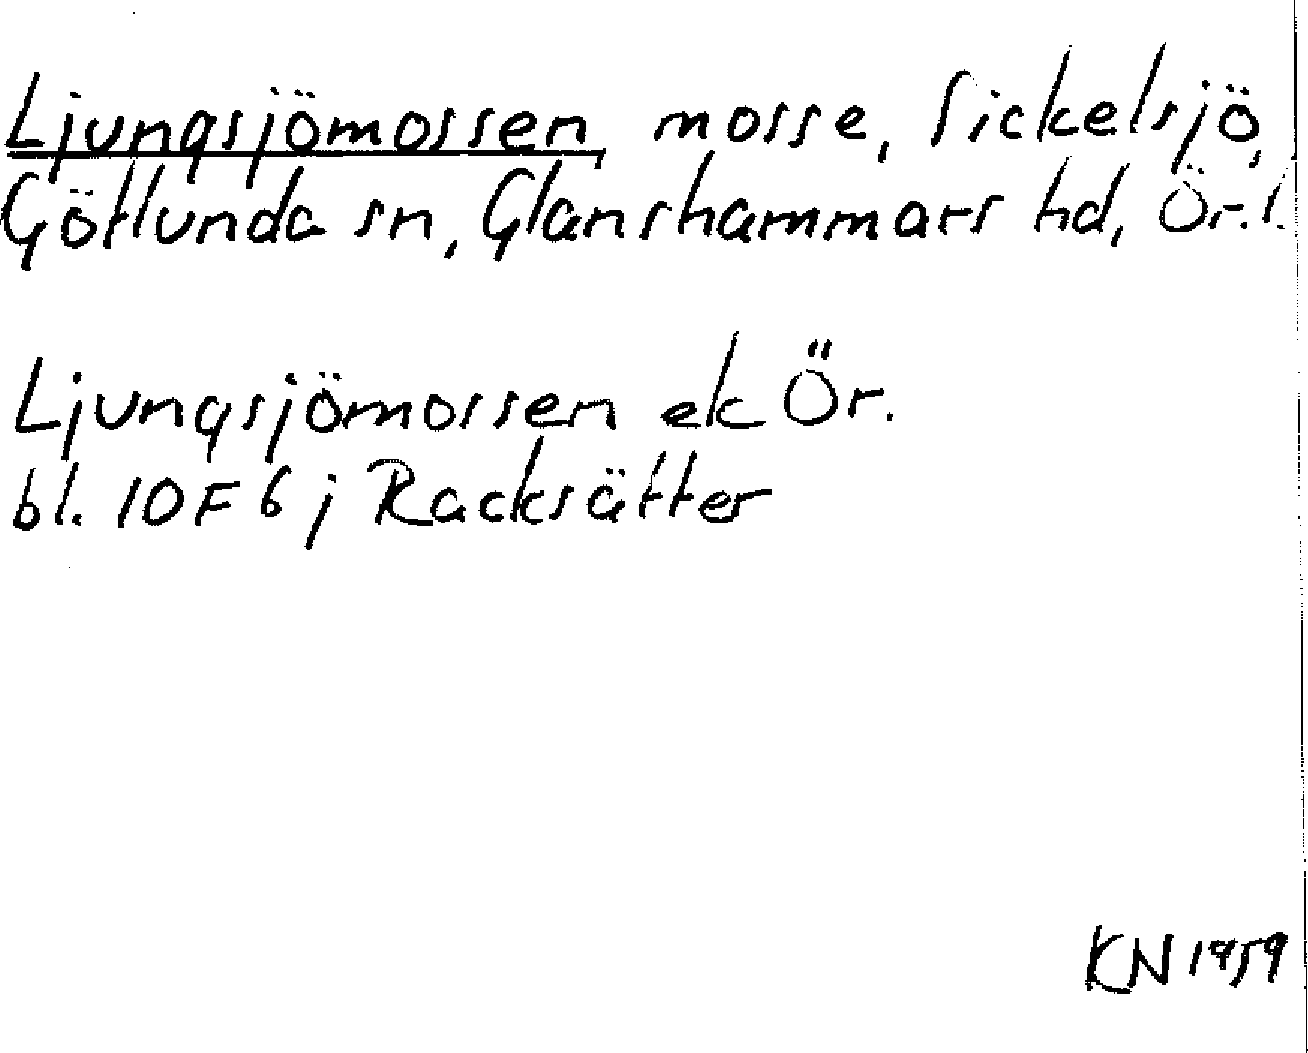 Ljungsjömossen, mosse, Sickelsjö,
Götlunda sn, Glanshammars hd, Ör. l.
Ljungsjömossen ek Ör.
bl. 10F 6 j Racksätter
KN 1959